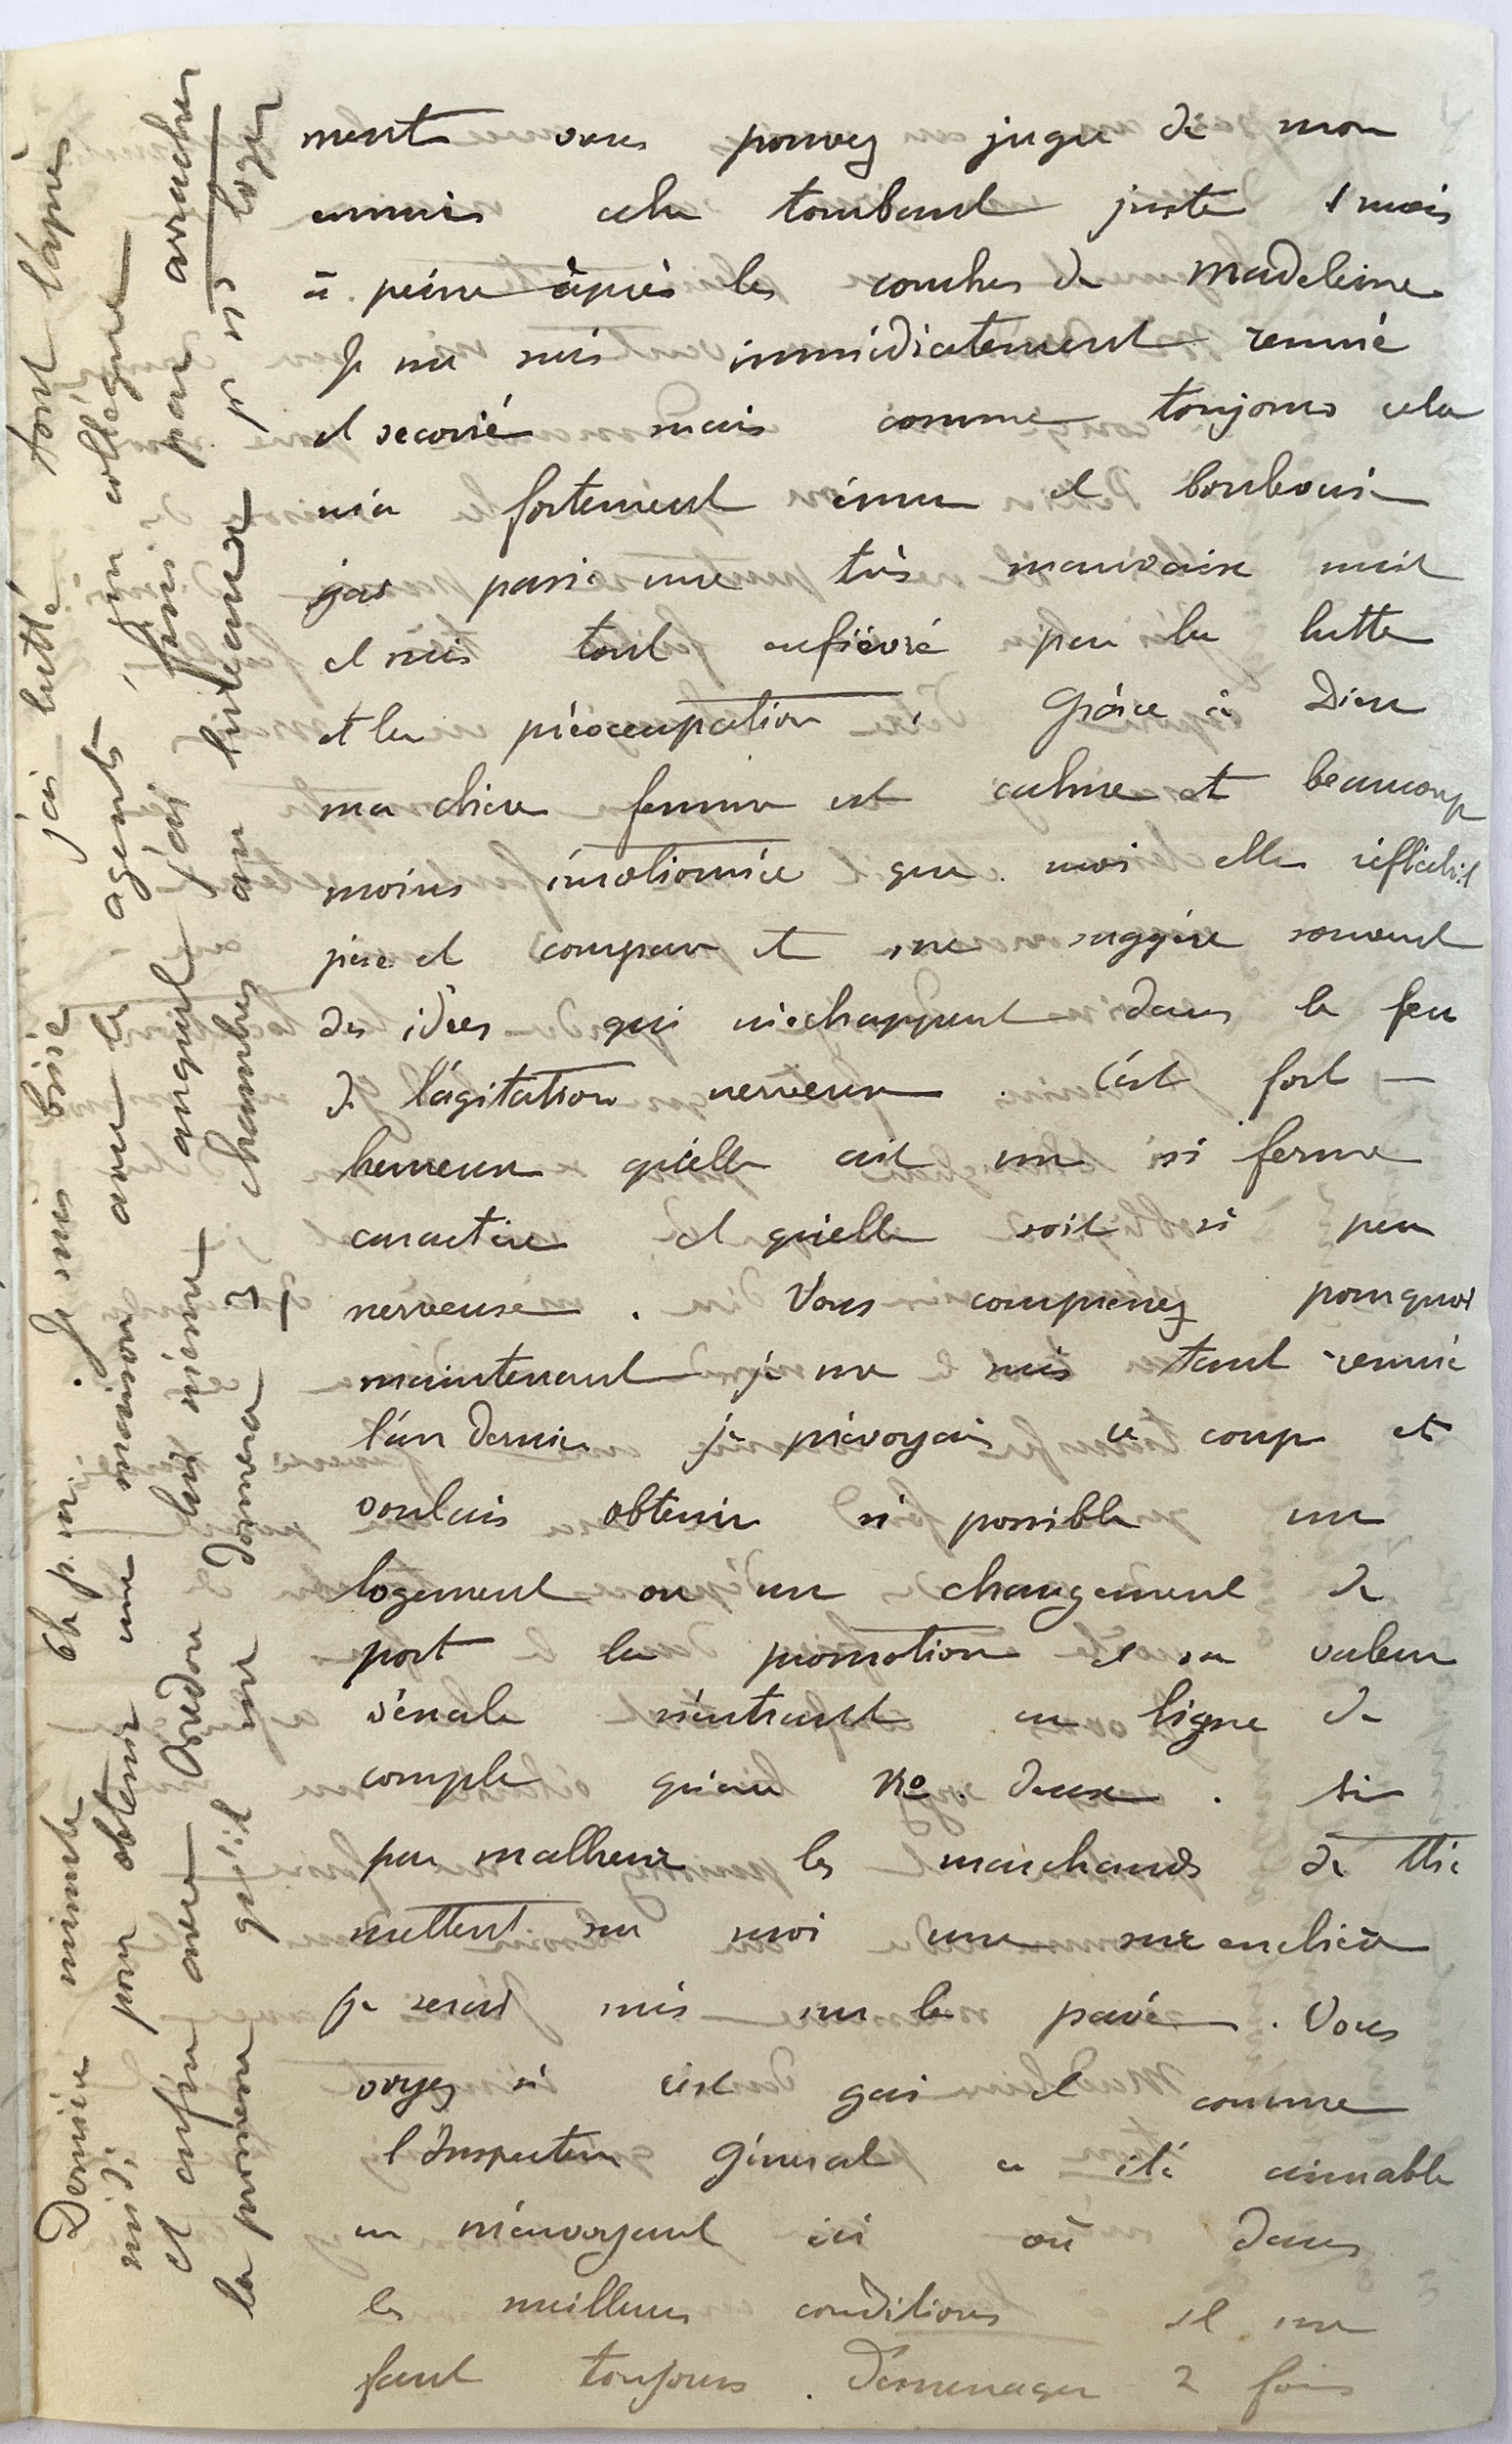 ment vous pouvez juger de mon
ennui cela tombant juste 1 mois
à peine après les couches de Madeleine
Je me suis immédiatement remué
et secoué mais comme toujours cela
m'a fortement ému et
j'ai passé une très mauvaise nuit
et suis tout enfiévré par la lutte
et la préoccupation. Grâce à Dieu
ma chère femme est calme et beaucoup
moins émotionnée que moi elle réfléchit
pèse et compare et me suggère souvent
des idées qui m'échappent dans le feu
de l'agitation nerveuse. C'est fort
heureux qu'elle ait un si ferme
caractère et qu'elle soit si peu
nerveuse. Vous comprenez pourquoi
maintenant je me suis tant remué
l'an dernier je prévoyais ce coup et
voulais obtenir si possible un
logement ou un changement de
port la promotion et sa valeur
vénale n'entrant en ligne de
compte qu'au No. deux. Si
par malheur les marchands de thé
mettent sur moi une surenchère
je serais mis sur le pavé. Vous
voyez si c'est gai et comme
l'Inspecteur Général a été aimable
en m'envoyant ici où dans
les meilleures conditions il me
faut toujours déménager 2 fois
Dernière minute 6h p.m. Je suis brisé j'ai lutté tout l'après
midi pour obtenir une maison avec les agents, un collègue
et enfin avec Oredon lui même auquel j'ai fini par arracher
la promesse qu'il me donnera 3 chambres au bureau p. ns loger